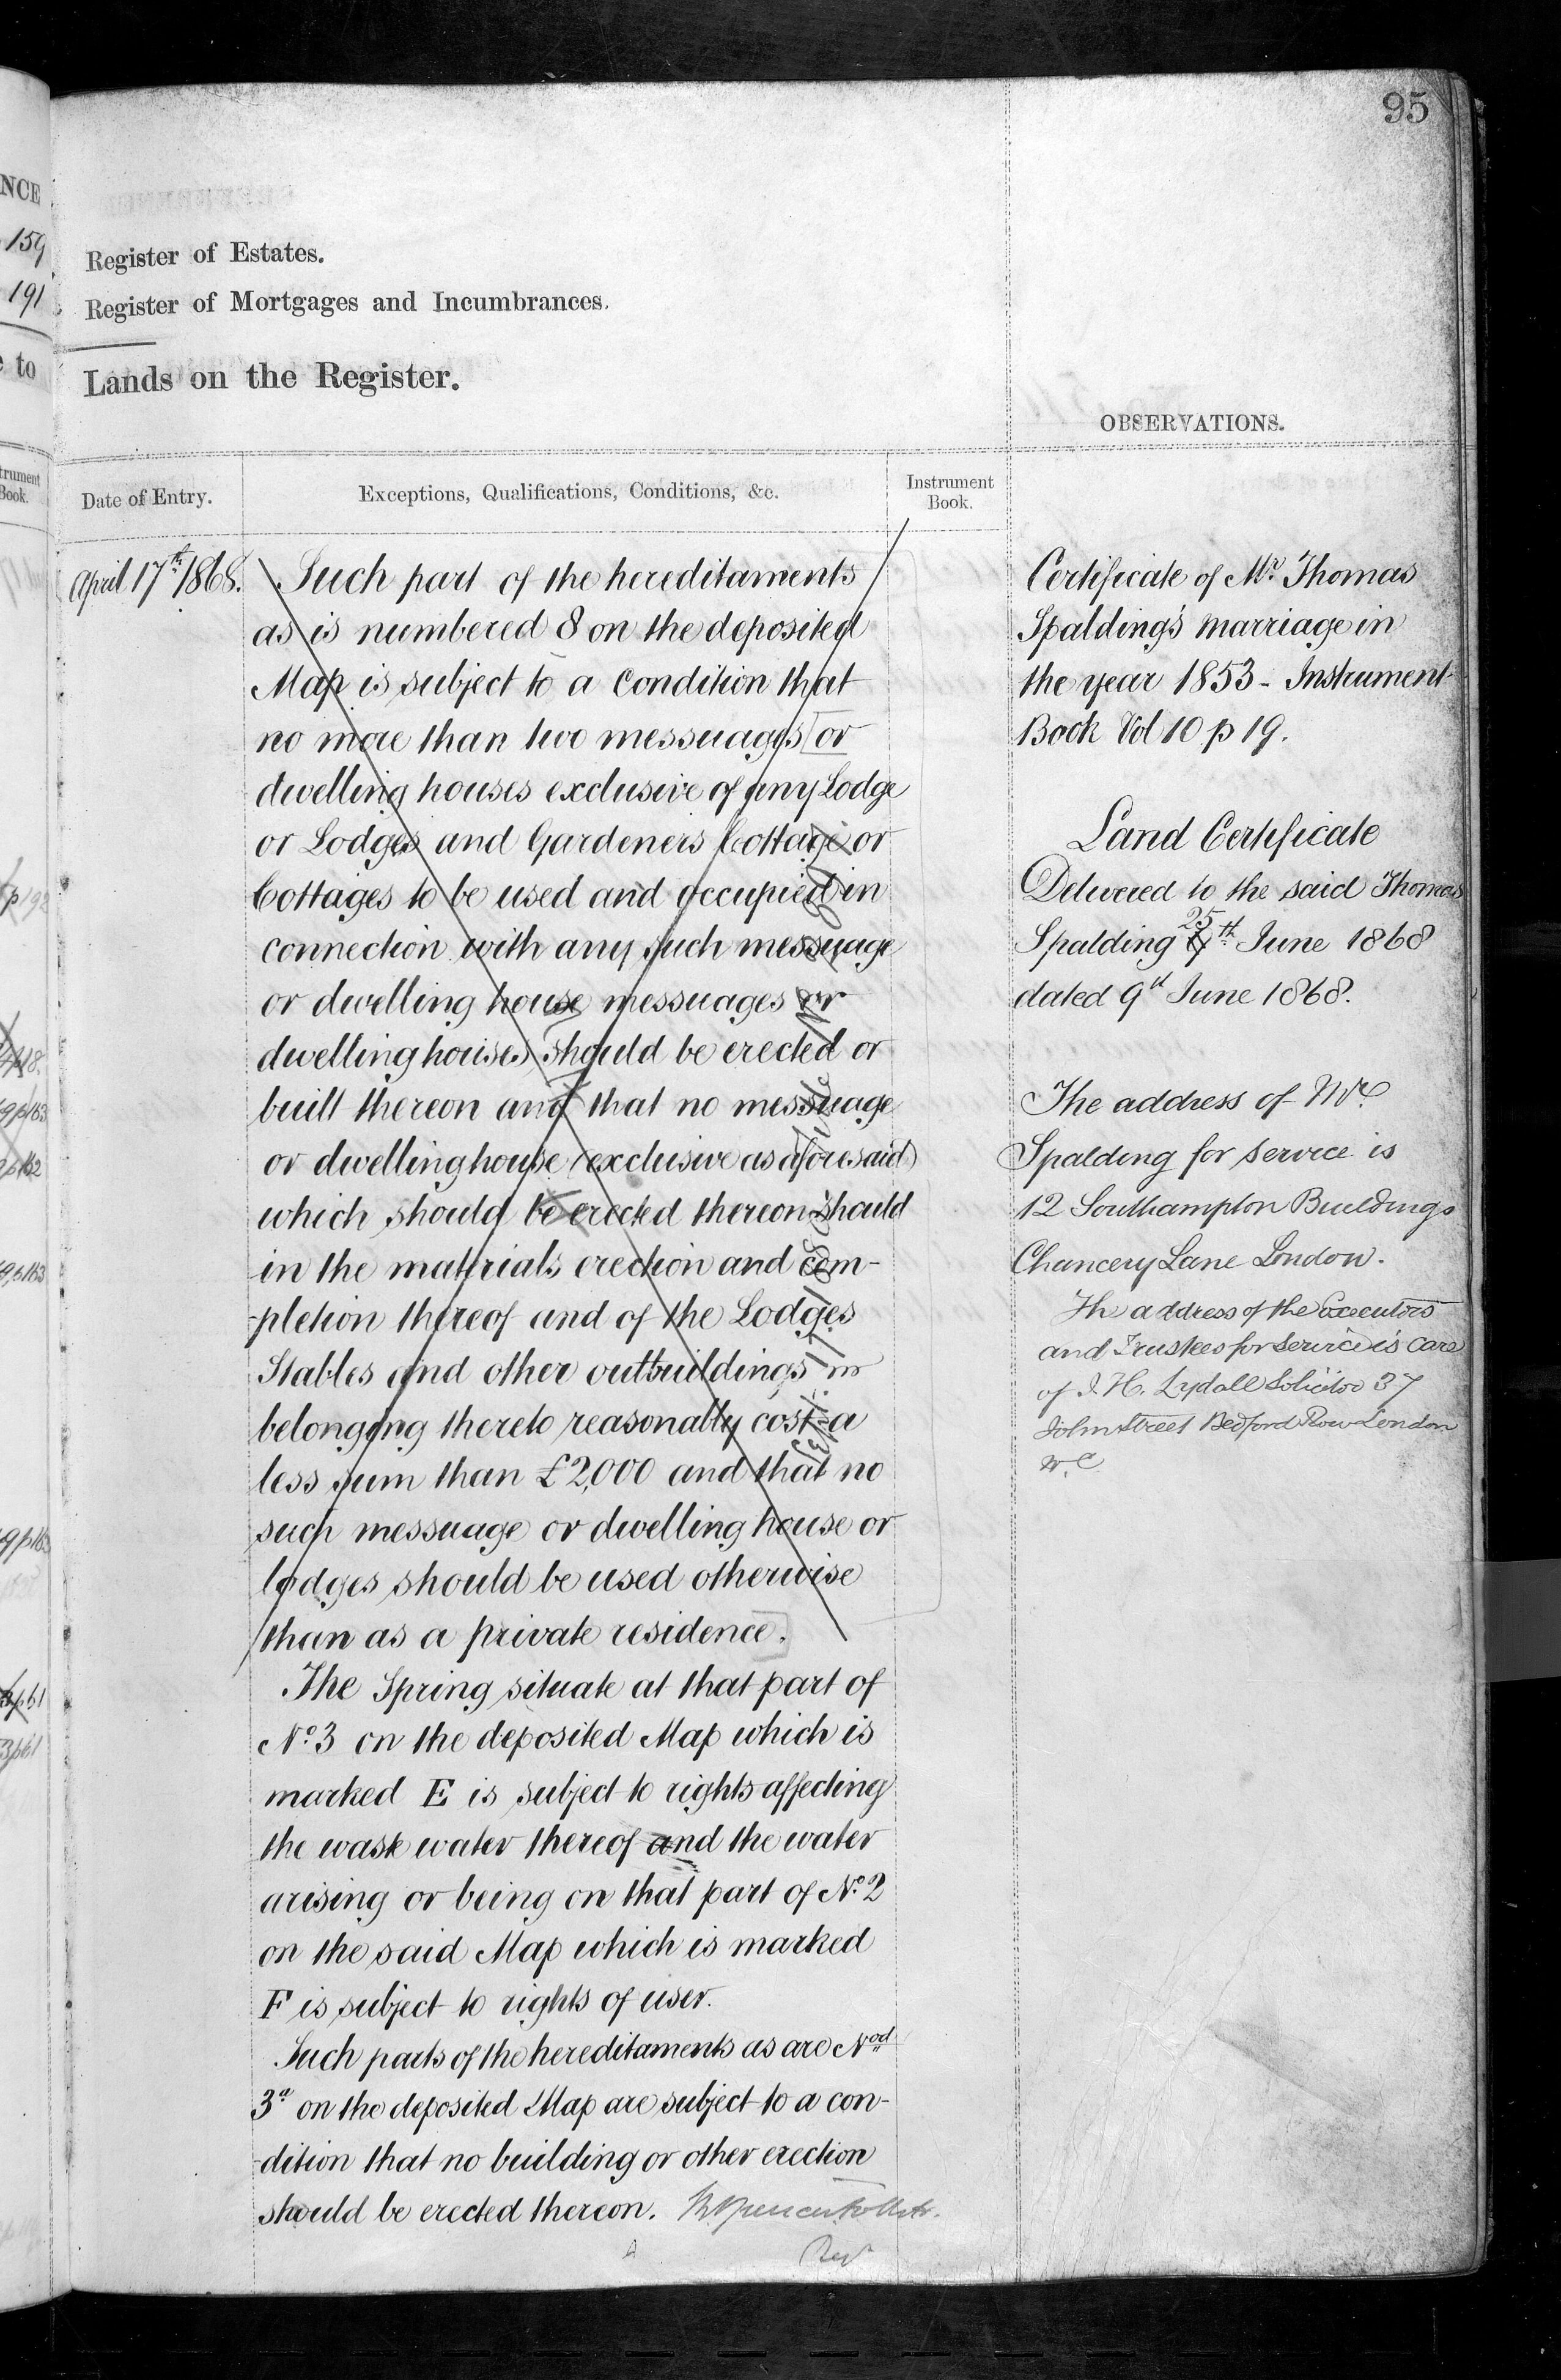 95
NCE
159
191
to
trument
Book.
Register of Estates.
Register of Mortgages and Incumbrances.
Lands on the Register.
OBSERVATIONS.
Date of Entry.
Exceptions, Qualifications, Conditions, &c.
Instrument
Book.
April 17th 1868.
Such part of the hereditaments
as is numbered 8 on the deposited
Map is subject to a condition that
no more than two messuages or
dwelling houses exclusive of any Lodge
or Lodges and Gardeners Cottage or
Cottages to be used and occupied in
connection with any such messuage
or dwelling house messuages or
dwellinghouses should be erected or
built thereon and that no messuage
or dwellinghouse (exclusive as aforesaid)
which should be erected thereon should
in the materials erection and com-
-pletion thereof and of the Lodges
Stables and other outbuildings
belonging thereto reasonably cost a
less sum than £2,000 and that no
such messuage or dwelling house or
lodges should be used otherwise
than as a private residence.
The Spring situate at that part of
No. 3 on the deposited Map which is
marked E is subject to rights affecting
the waste water thereof and the water
arising or being on that part of No. 2
on the said Map which is marked
F is subject to rights of user.
Such parts of the hereditaments as are Nod
3a on the deposited Map are subject to a con-
-dition that no building or other erection
should be erected thereon.
Regr
Certificate of Mr. Thomas
Spalding's marriage in
the year 1853 - Instrument
Book Vol 10 p 19.
Land Certificate
Delivered to the said Thomas
Spalding 25th June 1868
dated 9th June 1868.
The address of Mr.
Spalding for service is
12 Southampton Buildings
Chancery Lane London.
The address of the Executors
and Trustees for service is care
of J. H. Lydall Solicitor 37
John Street Bedford Row London
W.C.